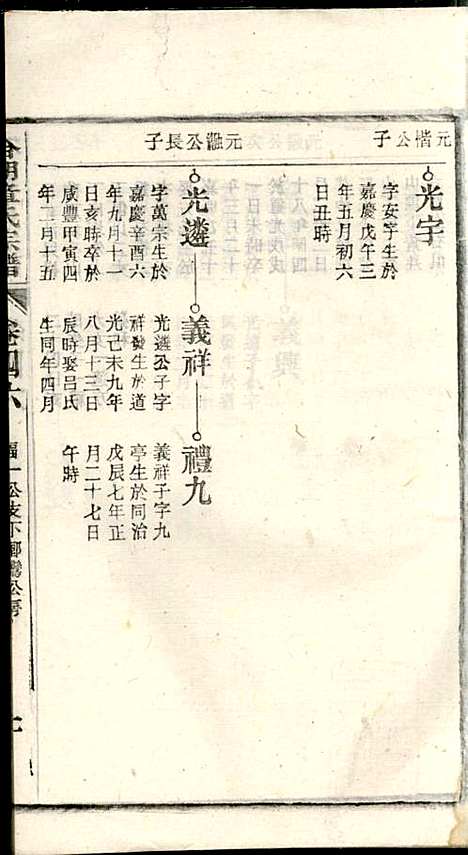 元楷公子
光宇
字安宇生於
嘉慶戊午三
年五月初六
日丑時
元灉公長子
光遴
字萬宗生於
嘉慶辛酉六
年九月十一
日亥時卒於
咸豐甲寅四
年二月十五
義祥
光遴公子字
祥發生於道
光己未九年
八月十三日
辰時娶呂氏
生同年四月
禮九
義祥子字九
亭生於同治
戊辰七年正
月二十七日
午時
董氏宗譜
卷四六
福一公支下鄉灣公房
七